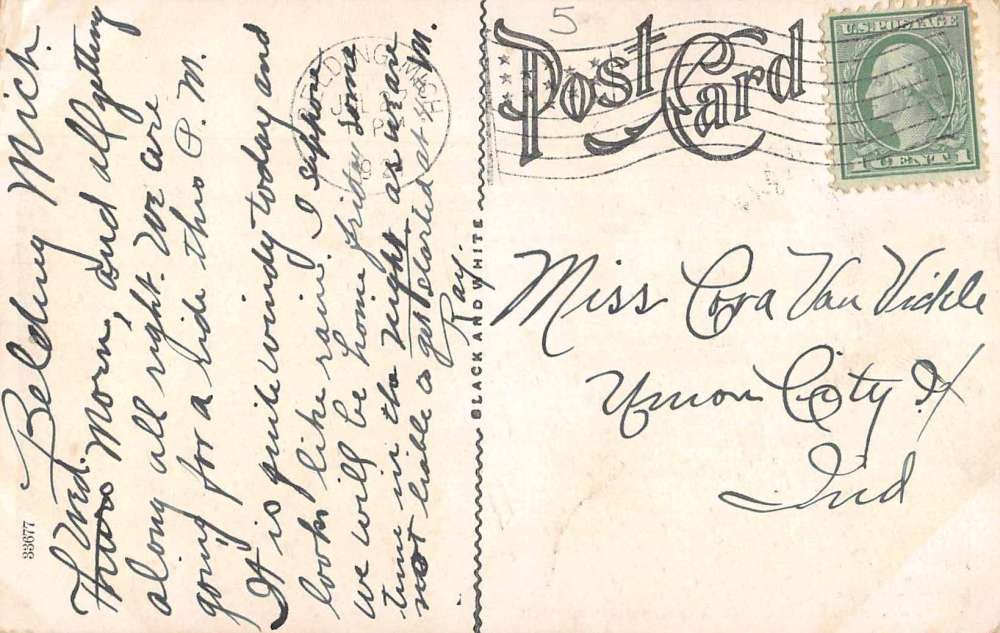 Belding Mich.
Wed.
Thurs Morn, and all getting
along all right. We are
going for a ride this P. M.
It is quite windy today and
looks like rain. I suppose
we will be home friday some
time in the night as we are
not liable to get started at 4 P. M.
Ray.
33677
BLACK AND WHITE
5
Post Card
BELDING MICH.
U.S. POSTAGE
1 CENT 1
Miss Cora Van Vickle
Union City
Ind